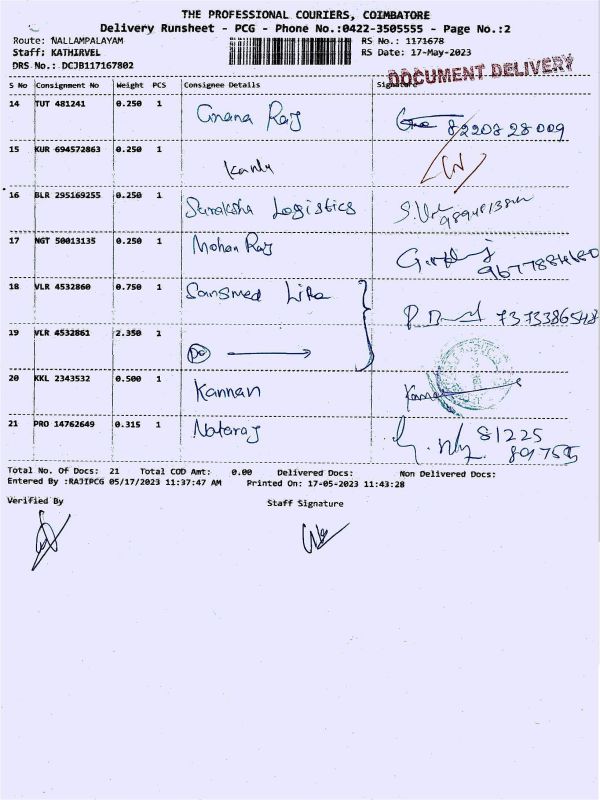 THE PROFESSIONAL COURIERS, COIMBATORE
Delivery Runsheet - PCG - Phone No.:0422-3505555 - Page No.:2
Route: NALLAMPALAYAM RS No.: 1171678
Staff: KATHIRVEL RS Date: 17-May-2023
DRS No.: DCJB117167802
DOCUMENT DELIVERY
S No Consignment No Weight PCS Consignee Details Signature
14 TUT 481241 0.250 1 Gnana Raj 8220828009
15 KUR 694572863 0.250 1
16 BLR 295169255 0.250 1 Suraksha Logistics
17 NGT 50013135 0.250 1 Mohan Raj
18 VLR 4532860 0.750 1 Sansmed Life 7373386548
19 VLR 4532861 2.350 1 Do
20 KKL 2343532 0.500 1 Kannan
21 PRO 14762649 0.315 1 Nataraj 81225
Total No. Of Docs: 21 Total COD Amt: 0.00 Delivered Docs: Non Delivered Docs:
Entered By :RAJIPCG 05/17/2023 11:37:47 AM Printed On: 17-05-2023 11:43:28
Verified By Staff Signature